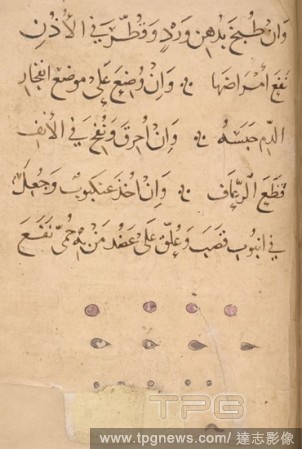 وَانْ طُبِخَ بدُهن وَرْدٍ وَقُطِّرَ في الأُذُنِ
نفَع أمْرَاضهَا وَانْ وُضِعَ عَلَى موضع انفجار
الدَّم حَبَسَهُ وَان أُحرقَ وَنُفخ في الأنف
قطَع الرُعَاف وَان اُخذ عنكبوتٌ وَجُعلَ
في انبُوب قصَب وَعُلّق عَلى عَضُد مَنْ به حُمىّ نَفَع
TPG
www.tpgnews.com / 達志影像